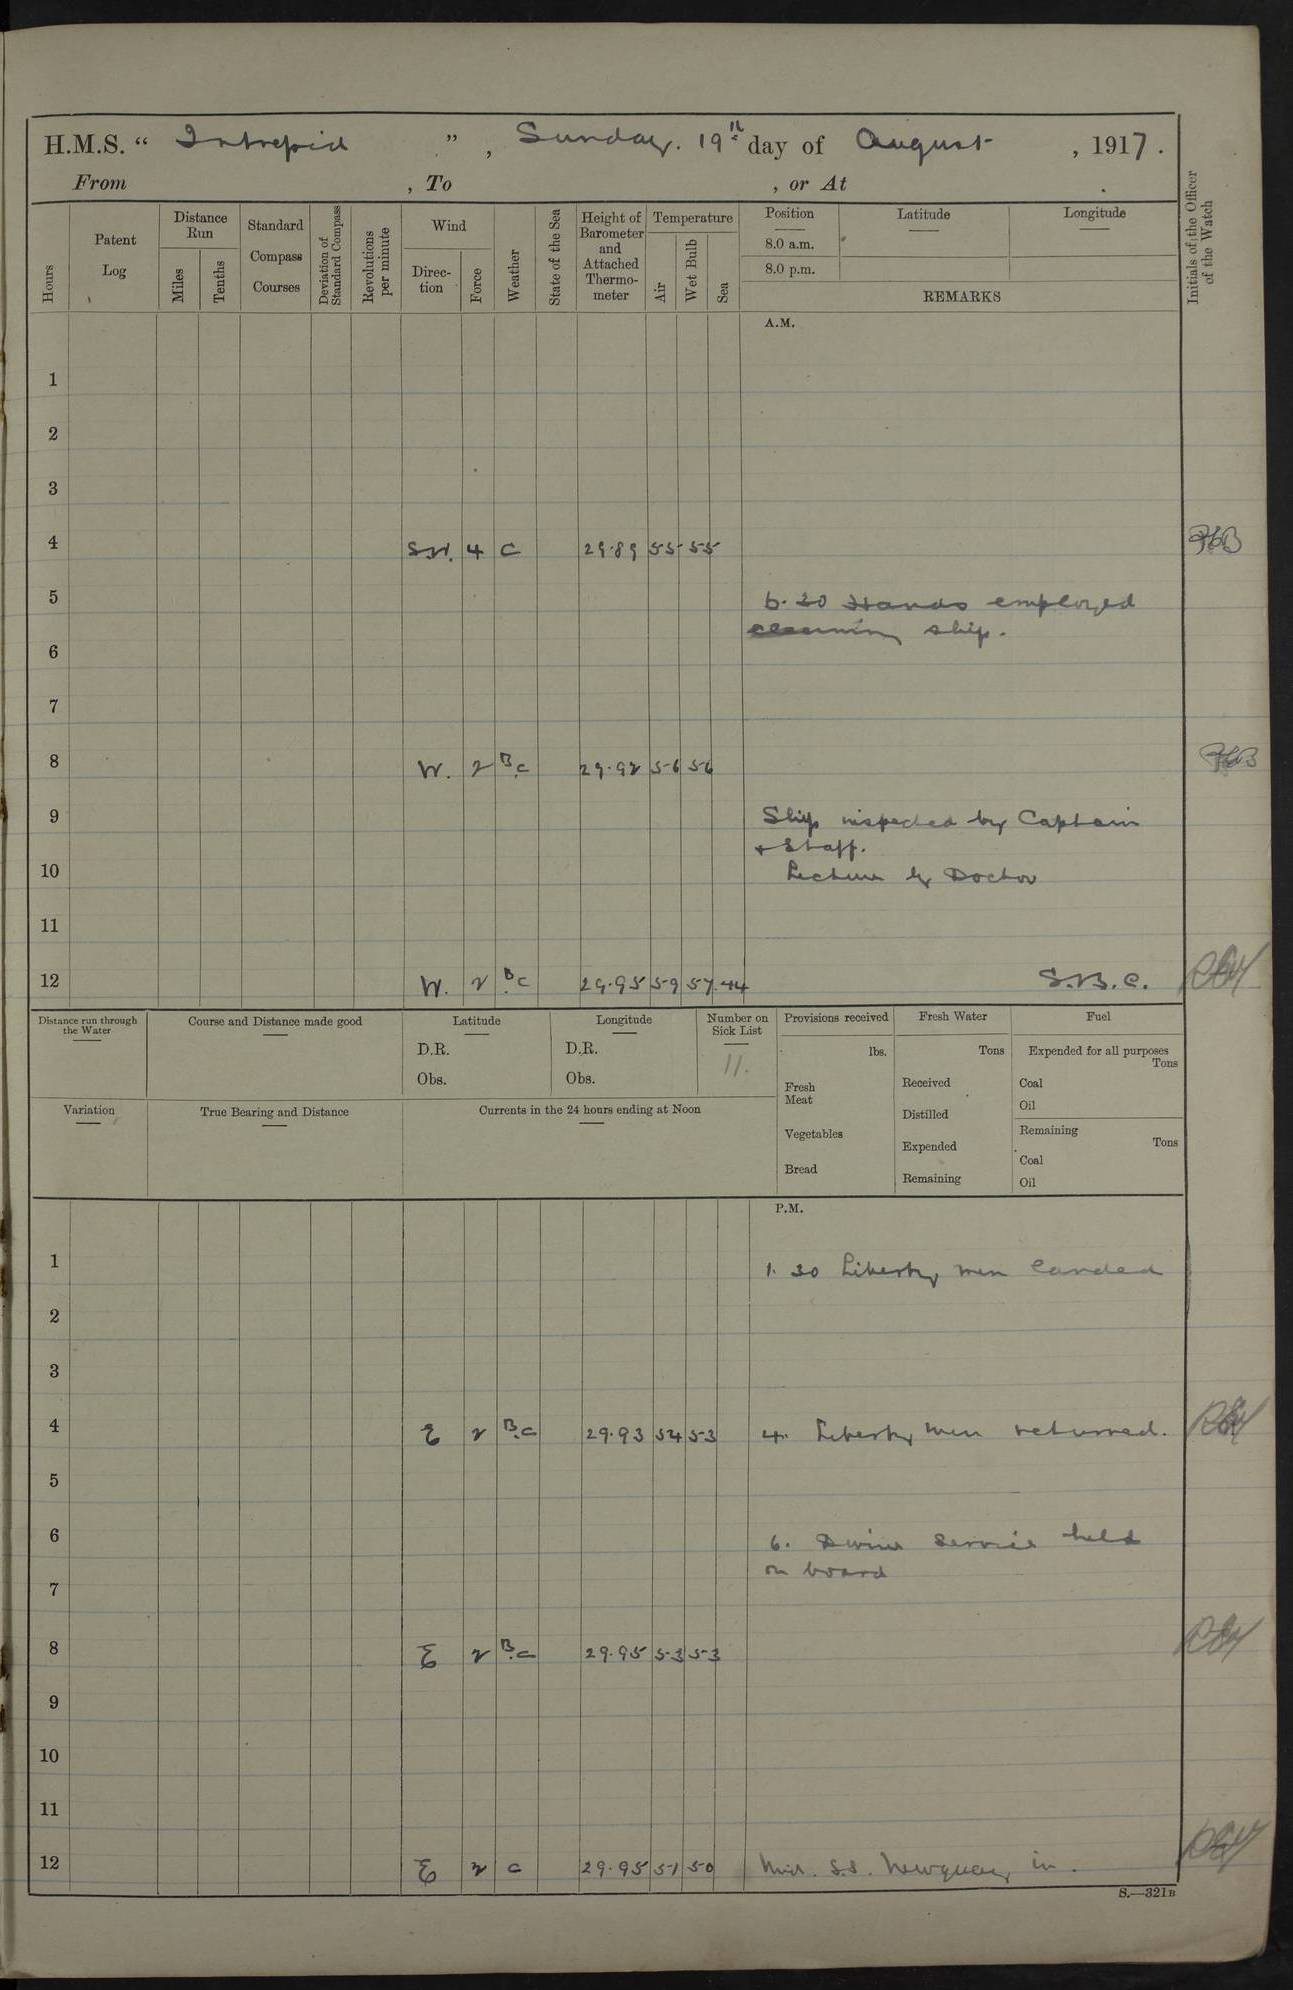 H.M.S. “ Intrepid ” , Sunday. 19th day of August , 1917.
From , To , or At .
Hours
Patent Log
Distance Run
Miles
Tenths
Standard Compass Courses
Deviation of Standard Compass
Revolutions per minute
Wind
Direc-tion
Force
Weather
State of the Sea
Height of Barometer and Attached Thermo-meter
Temperature
Air
Wet Bulb
Sea
Position
8.0 a.m.
8.0 p.m.
Latitude
Longitude
REMARKS
Initials of the Officer of the Watch
A.M.
1
2
3
4 SW. 4 C 29.89 55 55
5 6.30 Hands employed
cleaning ship.
6
7
8 W. 2 B.C 29.92 56 56
9 Ship inspected by Captain
+ Staff.
10 Lecture by Doctor
11
12 W. 2 B.C 29.95 59 57.44 S.B.C.
Distance run through the Water
Course and Distance made good
Latitude
D.R.
Obs.
Longitude
D.R.
Obs.
Number on Sick List
11.
Provisions received
lbs.
Fresh Meat
Vegetables
Bread
Fresh Water
Tons
Received
Distilled
Expended
Remaining
Fuel
Expended for all purposes
Tons
Coal
Oil
Remaining
Tons
Coal
Oil
Variation
True Bearing and Distance
Currents in the 24 hours ending at Noon
P.M.
1 1.30 Liberty men landed
2
3
4 E 2 B.C 29.93 54 53 4. Liberty men returned.
5
6 6. Divine Service held
on board
7
8 E 2 B.C 29.95 53 53
9
10
11
12 E 2 C 29.95 51 50 Mid. S.S. Newquay in.
S.—321B